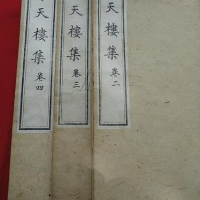 天樓集 卷二
天樓集 卷三
天樓集 卷四